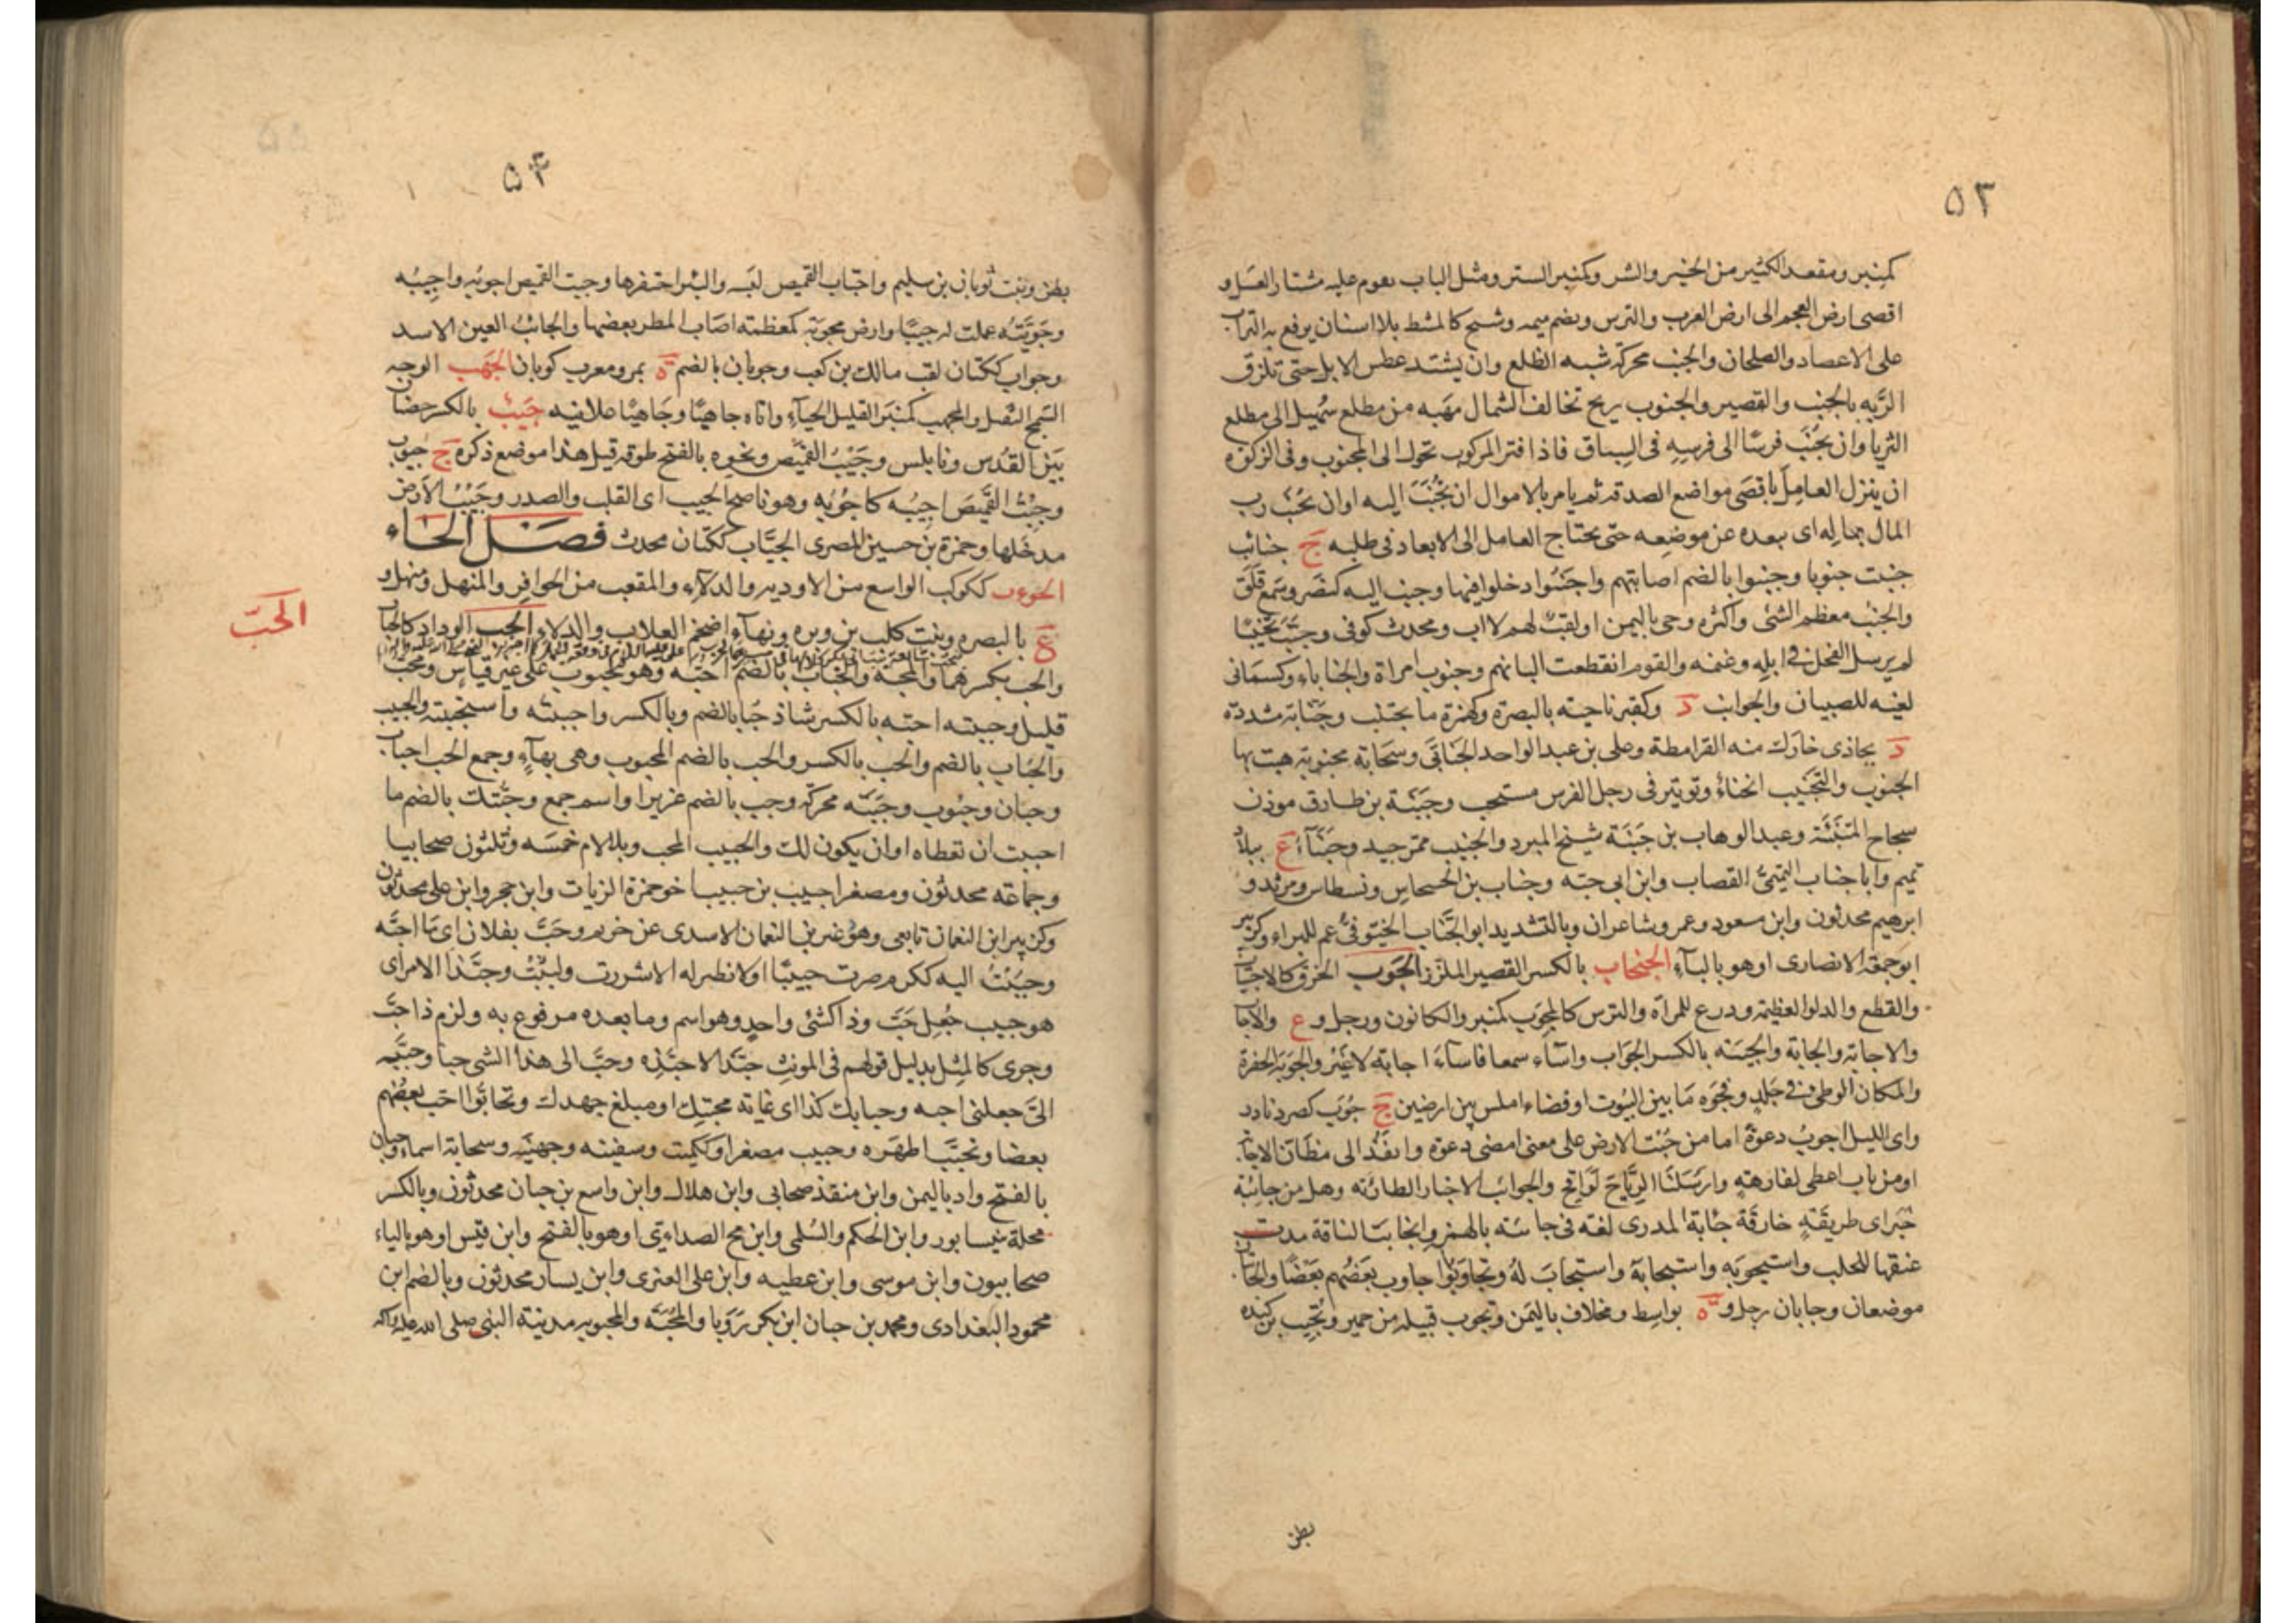 ٥٣
كمنبر ومقعد الكثير من الخير والشر وكمنبر الستر ومثل الباب يقوم عليه مشتار العسل و
اقصى ارض العجم الى ارض العرب والترس وبضم ميمه وشبح كالمشط بلا اسنان يرفع به التراب
على الاعضاد والفلجان والجنب محركة شبه الظلع وان يشتد عطش الابل حتى تلزق
الرّيه بالجنب والقصير والجنوب ريح تخالف الشمال مهبه من مطلع سُهيل الى مطلع
الثريا وان يجْنُبَ فرسًا الى فرسِهِ فى السباق فاذا فتر المركوب تحول الى المجنوب وفى الزكوة
ان ينزل العامِل باقصَى مواضع الصدقه ثم يامر بالاموال ان تُجْنَبَ اليه اوان يجْنُب رب
المال بماله اى يبعده عن موضِعه حتى يحتاج العامل الى الابعاد فى طلبه جَ جنائب
جنبت جنوبا وجنبوا بالضم اصابتهم واجنَبُوا دخلوا فيها وجنب اليه كنصَر وسَمع قَلَقَ
والجنْب معظم الشئ واكثره وحى باليمن او لقبٌ لهم لا اب ومحدث كوفى وجنَّبَ تجنيبًا
لم يرسل الفحل فى ابله وغنمه والقوم انقطعت البانهم وجنوب امراة والجناباء وكسمَانى
لعبه للصبيان والجوانب دَ وكقبر ناحيته بالبصرة وكهمزة ما يجتنب وجَنّابة مشددة
دَ يحاذى خارك منه القرامطة وعلى بن عبد الواحد الجَنّابى وسحَابة مجنوبة هبت بها
الجنوب والتجنيب انحناءٌ وتوتير فى رجل الفرس مستحب وجَنَبَة بن طارق موذن
سجاح المتنبئة وعبد الوهاب بن جَنَبَة شيخ المبرد والجنيب تمر جيد وجَنْبَآءُ عَ ببلاد
تميم وابا جناب التيمىّ القصاب وابن ابى حيه وجناب بن الحسحاس ونسطاس ومرثد و
ابرهيم محدثون وابن مسعود وعمر وشاعران وبالتشديد ابو الجَنّاب الخيَوقىُّ عم للمراء وكزبير
ابو جمعة الانصارى او هو بالبآء الجنحاب بالكسر القصير الملزز الجَوب الخرق كالاجتياب
والقطع والدلو العظيمة ودرع للمرآة والترس كالمِجوَب كمنبر والكانون ورجل و ع والاجاب
والاجابة والجابة والجيبَه بالكسر الجَوَاب واسآء سمعا فاسآءَ اجابة لا غير والجَوبَة الحفرة
والمكان الوطئ فى جَلَدٍ وفجوَه مَا بين البيُوت او فضاء املس بين ارضين جَ جُوَب كصرد نادر
واى الليل اجوبُ دعوةً اما من جُبْت الارض على معنى امضى دعوة وانفَذُ الى مظَان الاجابة
او من باب اعطى لفارهةٍ وارسَلنَا الرِيَاحَ لَوَاقِحَ والجوائب الاخبار الطارئه وهل من جائبة
خبَر اى طريقَةٍ خارقَة جَابَة المدرى لغة فى جائبته بالهمز وانجابت الناقة مدت
عنقها للحلب واستجوبَه واستجابة واستجابَ لهُ وتجاوَبُوا جاوب بعَضُهم بَعَضًا والجابتان
موضعان وجابان رجل و ةَ بواسِط ومخلاف باليَمن وتجوب قبيله من حمير وتُجِيب بن كنده
بطن
٥٤
بطن وبنت ثوبان بن سليم واجتاب القميص لبَسه والبئر احتفرها وجبت القميص اجوبه واجِيبُه
وجَوّبتُه عملت له جيبًا وارض مجوبَة كمعظمة اصَاب المطر بعضها والجائبُ العين الاسد
وجواب ككتان لقب مالك بن كعب وجوبان بالضم ةَ بمرو معرب كوبان الجَهب الوجه
السّمج الثقيل والمجهب كمنبَر القليل الحيآءِ واتاه جاهبًا وجَاهبًا علانيه جيبٌ بالكسر حضان
بَيْن القُدس ونابلس وجَيْبُ القمِيص ونحوه بالفتح طوقه قيل هذا موضع ذكره جَ جيوب
وجِبْتُ القَمِيصَ اجِيبُه كاجُوبُه وهو ناصح الجيب اى القلب والصدر وجَيْبُ الأرض
مدخَلها وحمزة بن حسين المصرى الجيّاب ككتان محدث فصَل الحَاء
الحوءب ككوكب الواسع من الاوديه والدلآء والمقعب من الحوافِر والمنهل ومنهل و
الحَبّ
عَ بالبصره وبنت كلب بن وبره وبهآء اضخم العلاب والدلاء الحُب الوداد كالحباب
والحب بكسرهما والمحبة والحُباب بالضم احبَّه وهو محبوب على غير قياسٍ ومُحَب
قليل وحببته احبّه بالكسر شاذ حُبا بالضم وبالكسر واحببته واستحببته والحبيب
والحُبَاب بالضم والحِب بالكسر والحب بالضم المحبوب وهى بهآءٍ وجمع الحب احباب
وحبان وحبُوب وحبَبَه محركة وحب بالضم عزيز او اسم جمع وحبّتك بالضم ما
احببت ان تعطاه او ان يكون لك والحبيب المحب وبلا لام خمسَه وثلثون صحابيا
وجماعَه محدثون ومصغرا حبيب بن حبيب اخو حمزة الزيات وابن حجر وابن على محدثون
وكزبير ابن النعمان تابعى وهو غير بن النعمان الاسدى عن خريم وحَبَّ بفلان اى مَا احبَّه
وحبُبْتُ اليه ككرم صرت حبيبًا او لا نظير له الا شررت ولبُبْتُ وحبَّذا الامر اى
هو حبيب جُعِل حَبَّ وذا كشئ واحدٍ وهو اسم وما بعده مرفوع به ولزم ذا حبَّ
وجرى كالمِثْل بدليل قولهم فى المونث حبّذا لا حبّذِه وحبَّ الى هذا الشئ حبا وحبَّبَه
الىّ جعلنى احبه وحبابك كذا اى غاية محبتِك او مبلغ جهدك وتحابّوا احب بعضُهم
بعضا وتحبَّب اظهَره وحبيب مصغرا وككيت وسفينه وجهينَه وسحابة اسماء وحبان
بالفتح واد باليمن وابن منقذ صحابى وابن هلال وابن واسع بن حبان محدثون وبالكسر
محلة بنيسابور وابن الحكم والسُلمى وابن بح الصداءِى او هو بالفتح وابن قيس او هو بالياء
صحابيون وابن موسى وابن عطيه وابن على العنزى وابن يسار محدثون وبالضم ابن
محمود البغدادى ومحمد بن حبان ابن بكر رَوَيا والمُحَبّة والمحبوبه مدينة النبى صلى الله عليه وآله